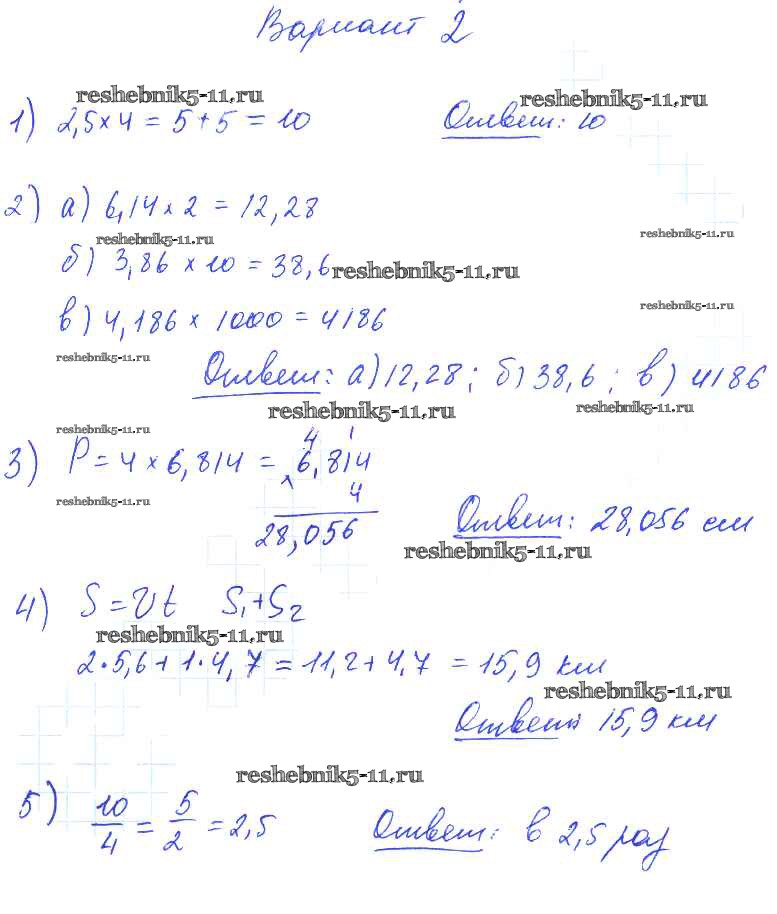 Вариант 2
reshebnik5-11.ru
reshebnik5-11.ru
1) 2,5 × 4 = 5 + 5 = 10 Ответ: 10
2) а) 6,14 × 2 = 12,28
reshebnik5-11.ru
reshebnik5-11.ru
б) 3,86 × 10 = 38,6
reshebnik5-11.ru
reshebnik5-11.ru
в) 4,186 × 1000 = 4186
reshebnik5-11.ru
Ответ: а) 12,28; б) 38,6; в) 4186
reshebnik5-11.ru
reshebnik5-11.ru
reshebnik5-11.ru
4 1
3) P = 4 × 6,814 = × 6,814
reshebnik5-11.ru
4
28,056 Ответ: 28,056 см
reshebnik5-11.ru
4) S = Vt S1 + S2
reshebnik5-11.ru
2 · 5,6 + 1 · 4,7 = 11,2 + 4,7 = 15,9 км
reshebnik5-11.ru
Ответ: 15,9 км
reshebnik5-11.ru
5) 10/4 = 5/2 = 2,5 Ответ: в 2,5 раз